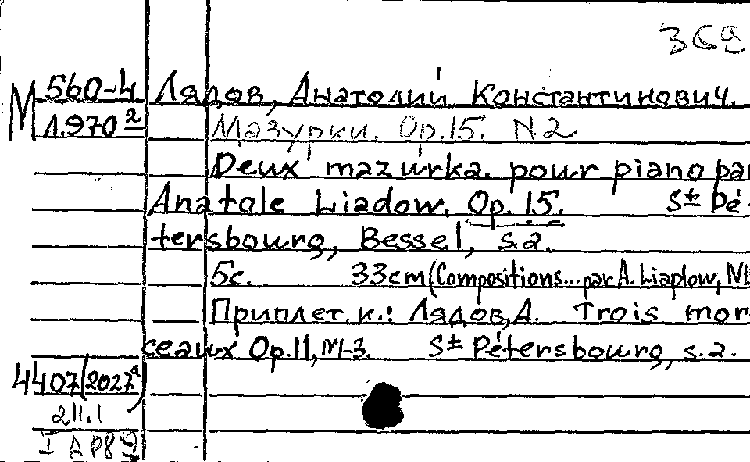 369
М 560-4 Лядов, Анатолий Константинович.
Л.970² Мазурки. Op.15. N2
Deux mazurka. pour piano par
Anatole Liadow. Op.15. St Pé-
tersbourg, Bessel, s.a.
5c. 33cm (Compositions... par A. Liadow, N1
Приплет к.: Лядов, А. Trois mor-
ceaux Op.11, N1-3. St Pétersbourg, s.a.
4407/2027a
211.1